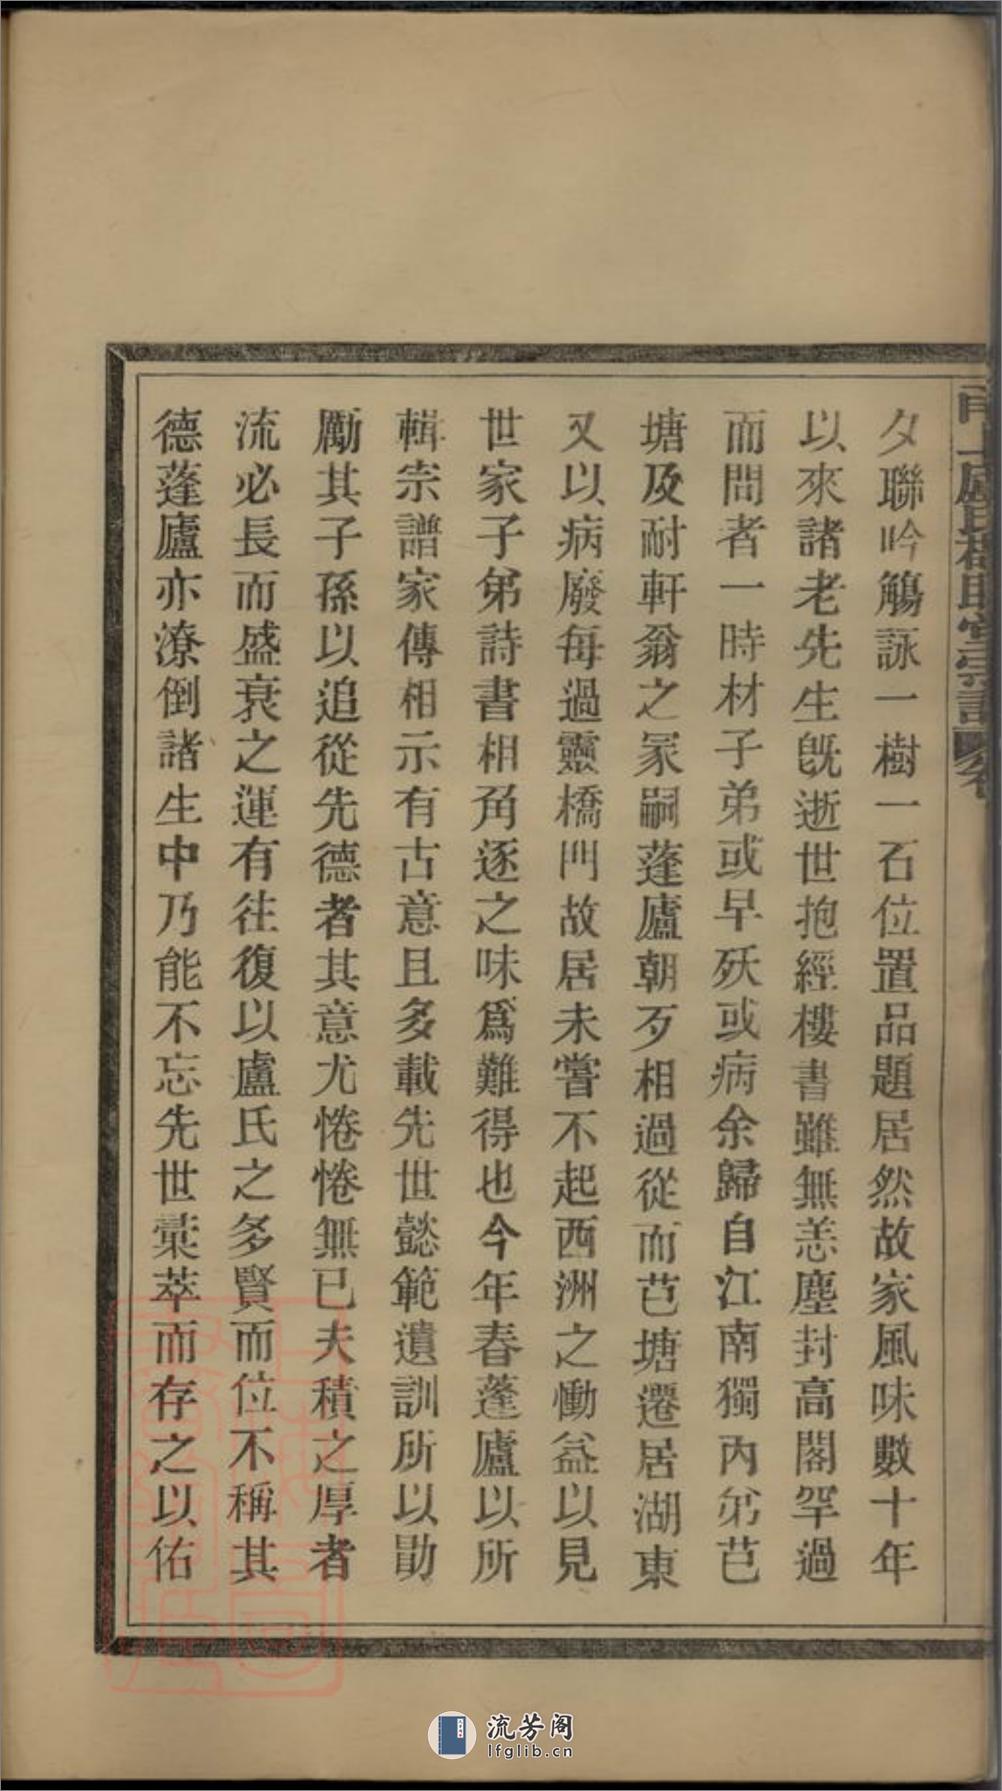 夕聯吟觴詠一樹一石位置品題居然故家風味數十年
以來諸老先生旣逝世抱經樓書雖無恙塵封高閣罕過
而問者一時材子弟或早殀或病余歸自江南獨內弟芑
塘及耐軒翁之冡嗣蓬廬朝歹相過從而芑塘遷居湖東
又以病廢每過靈橋門故居未嘗不起西洲之慟益以見
世家子弟詩書相角逐之味爲難得也今年春蓬廬以所
輯宗譜家傳相示有古意且多載先世懿範遺訓所以勖
勵其子孫以追從先德者其意尤惓惓無已夫積之厚者
流必長而盛衰之運有往復以盧氏之多賢而位不稱其
德蓬廬亦潦倒諸生中乃能不忘先世彙萃而存之以佑
流芳阁
lfglib.cn